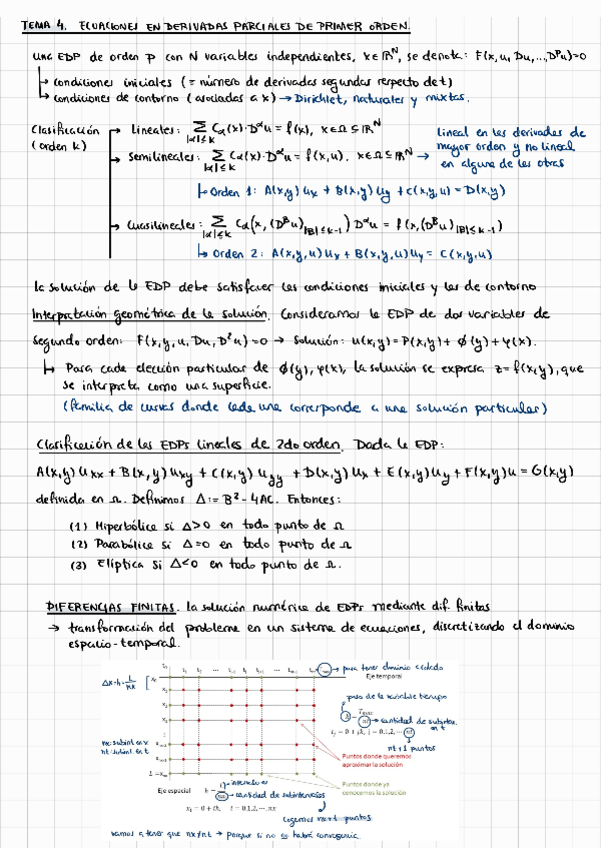 TEMA 4. ECUACIONES EN DERIVADAS PARCIALES DE PRIMER ORDEN.
una EDP de orden p con N variables independientes, x∈ℝᴺ, se denota: F(x,u,Du,...,Dᵖu)=0
↳ condiciones iniciales (= número de derivadas segundas respecto de t)
↳ condiciones de contorno (asociadas a x) → Dirichlet, naturales y mixtas.
Clasificación (orden k)
→ Lineales: Σ|α|≤k Cα(x)·Dᵅu = f(x), x∈Ω⊆ℝᴺ
→ Semilineales: Σ|α|≤k Cα(x)·Dᵅu = f(x,u). x∈Ω⊆ℝᴺ → lineal en las derivadas de mayor orden y no lineal en alguna de las otras
↳ Orden 1: A(x,y)ux + B(x,y)uy + C(x,y,u) = D(x,y)
→ Cuasilineales: Σ|α|≤k Cα(x,(Dᴮu)|B|≤k-1) Dᵅu = f(x,(Dᴮu)|B|≤k-1)
↳ Orden 2: A(x,y,u)ux + B(x,y,u)uy = C(x,y,u)
la solución de la EDP debe satisfacer las condiciones iniciales y las de contorno
Interpretación geométrica de la solución. Consideramos la EDP de dos variables de
segundo orden: F(x,y,u,Du,D²u)=0 → Solución: u(x,y)=P(x,y)+ϕ(y)+φ(x).
↳ Para cada elección particular de ϕ(y), φ(x), la solución se expresa z=f(x,y), que
se interpreta como una superficie.
(familia de curvas donde cada una corresponde a una solución particular)
Clasificación de las EDPs lineales de 2do orden. Dada la EDP:
A(x,y)uxx + B(x,y)uxy + C(x,y)uyy + D(x,y)ux + E(x,y)uy + F(x,y)u = G(x,y)
definida en Ω. Definimos Δ:= B²-4AC. Entonces:
(1) Hiperbólica si Δ>0 en todo punto de Ω
(2) Parabólica si Δ=0 en todo punto de Ω
(3) Elíptica si Δ<0 en todo punto de Ω.
DIFERENCIAS FINITAS. la solución numérica de EDPs mediante dif. finitas
→ transformación del problema en un sistema de ecuaciones, discretizando el dominio
espacio-temporal.
→ para tener dominio acotado
Eje temporal
Δx=h=L/nx
paso de la variable tiempo
→ cantidad de subintov. en t
tj = 0 + jk, j = 0,1,2,⋯
nt+1 puntos
nx: subint en x
nt: subint. en t
Puntos donde queremos
aproximar la solución
Puntos donde ya
conocemos la solución
Eje espacial
→ cantidad de subintervalos
xi = 0 + ih, i = 0,1,2,⋯,nx
cogemos nx+1 puntos
vamos a tener que nx≠nt → porque si no se habrá convergencia.